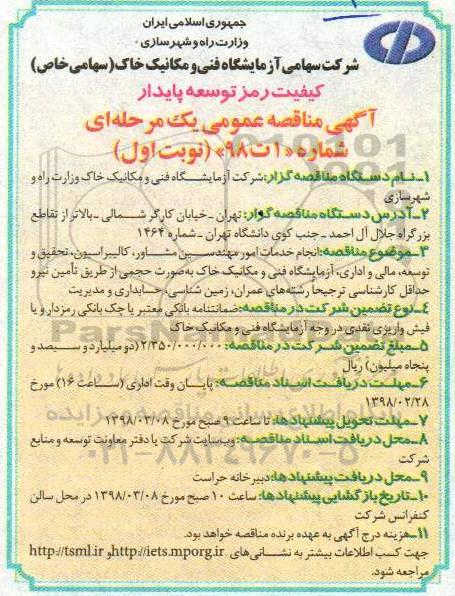 جمهوری اسلامی ایران
وزارت راه و شهرسازی
شرکت سهامی آزمایشگاه فنی و مکانیک خاک (سهامی خاص)
کیفیت رمز توسعه پایدار
آگهی مناقصه عمومی یک مرحله‌ای
شماره «۱ت۹۸» (نوبت اول)
۱-نام دستگاه مناقصه گزار: شرکت آزمایشگاه فنی و مکانیک خاک وزارت راه و
شهرسازی
۲-آدرس دستگاه مناقصه گزار: تهران -خیابان کارگر شمالی -بالاتر از تقاطع
بزرگراه جلال آل احمد -جنب کوی دانشگاه تهران -شماره ۱۴۶۴
۳-موضوع مناقصه: انجام خدمات امور مهندسین مشاور، کالیبراسیون، تحقیق و
توسعه، مالی و اداری، آزمایشگاه فنی و مکانیک خاک به‌صورت حجمی از طریق تأمین نیرو
حداقل کارشناسی ترجیحاً رشته‌های عمران، زمین شناسی، حسابداری و مدیریت
۴-نوع تضمین شرکت در مناقصه: ضمانتنامه بانکی معتبر یا چک بانکی رمزدار و یا
فیش واریزی نقدی در وجه آزمایشگاه فنی و مکانیک خاک
۵-مبلغ تضمین شرکت در مناقصه: ۲/۳۵۰/۰۰۰/۰۰۰ (دو میلیارد و سیصد و
پنجاه میلیون) ریال
۶-مهلت دریافت اسناد مناقصه: پایان وقت اداری (ساعت ۱۶) مورخ
۱۳۹۸/۰۲/۲۸
۷-مهلت تحویل پیشنهادها: تا ساعت ۹ صبح مورخ ۱۳۹۸/۰۳/۰۸
۸-محل دریافت اسناد مناقصه: وب‌سایت شرکت یا دفتر معاونت توسعه و منابع
شرکت
۹-محل دریافت پیشنهادها: دبیرخانه حراست
۱۰-تاریخ بازگشایی پیشنهادها: ساعت ۱۰ صبح مورخ ۱۳۹۸/۰۳/۰۸ در محل سالن
کنفرانس شرکت
۱۱-هزینه درج آگهی به عهده برنده مناقصه خواهد بود.
جهت کسب اطلاعات بیشتر به نشانی‌های http://iets.mporg.ir و http://tsml.ir
مراجعه شود.
۰۲۱-۸۸۳۴۹۶۷۰-۵